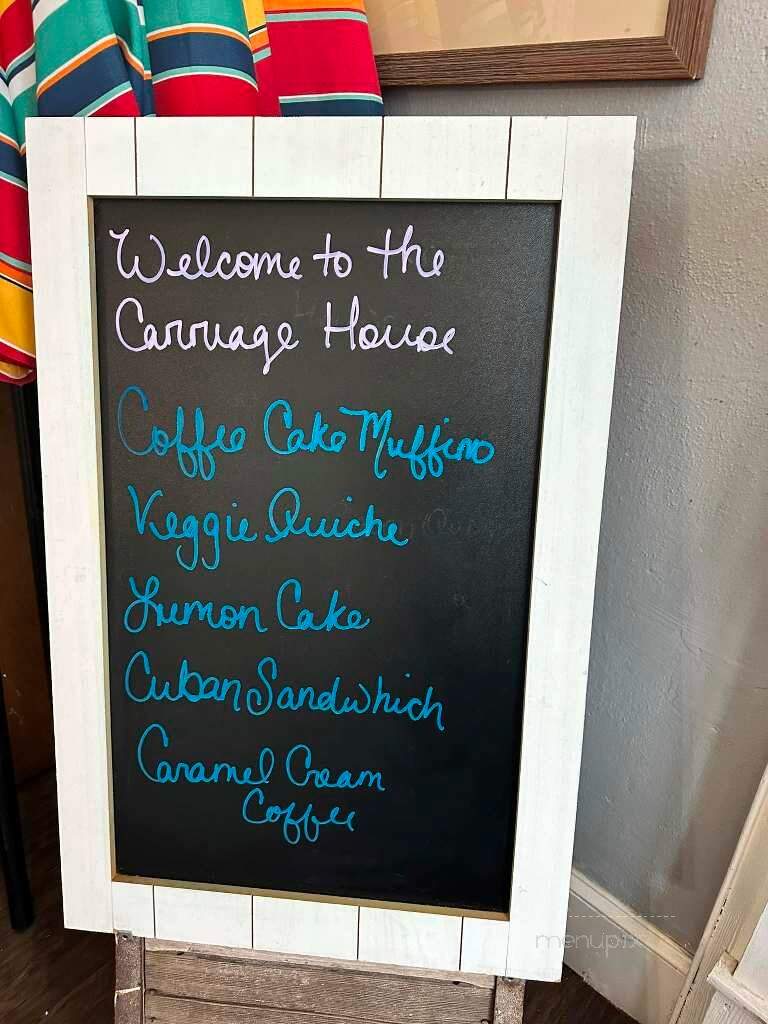 Welcome to the
Carriage House
Coffee Cake Muffins
Veggie Quiche
Lemon Cake
Cuban Sandwhich
Caramel Cream
Coffee
menupix